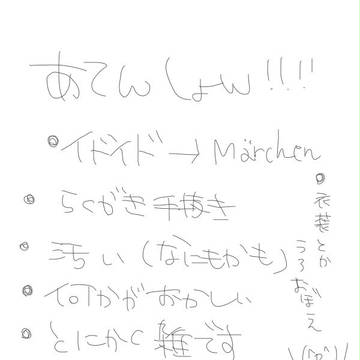 あてんしょん!!!!
◎イドイド→Märchen
◎らくがき手抜き
◎汚い(なにもかも)
◎何かがおかしい
◎とにかく雑です
◎衣装とか
うろおぼえ